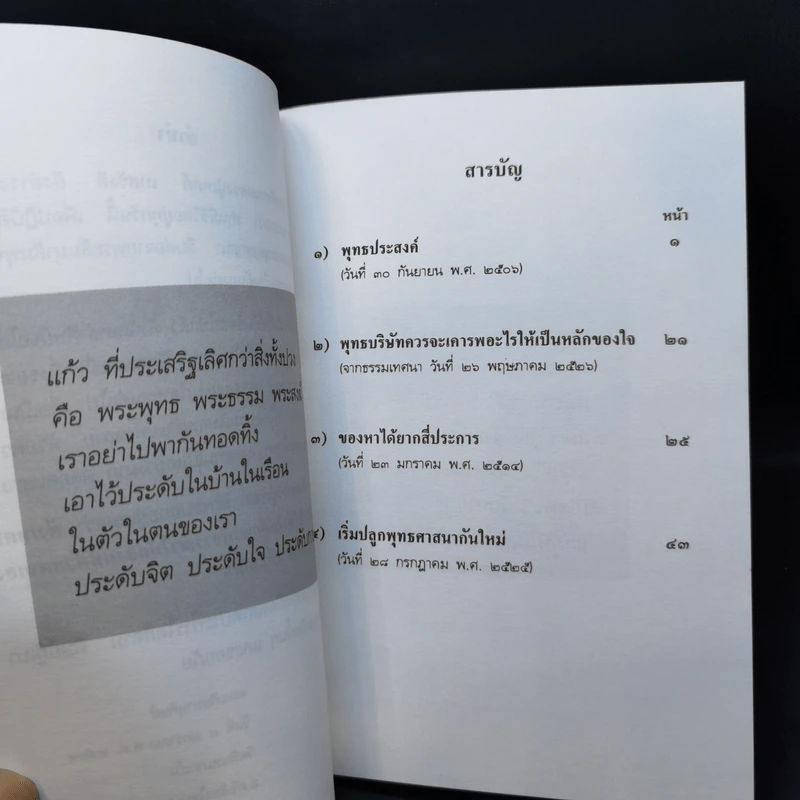 แก้ว ที่ประเสริฐเลิศกว่าสิ่งทั้งปวง
คือ พระพุทธ พระธรรม พระสงฆ์
เราอย่าไปพากันทอดทิ้ง
เอาไว้ประดับในบ้านในเรือน
ในตัวในตนของเรา
ประดับจิต ประดับใจ
สารบัญ
หน้า
๑) พุทธประสงค์ ๑
(วันที่ ๓๐ กันยายน พ.ศ. ๒๕๐๖)
๒) พุทธบริษัทควรจะเคารพอะไรให้เป็นหลักของใจ ๒๑
(จากธรรมเทศนา วันที่ ๒๖ พฤษภาคม ๒๕๒๖)
๓) ของหาได้ยากสี่ประการ ๒๕
(วันที่ ๒๓ มกราคม พ.ศ. ๒๕๑๔)
๔) เริ่มปลูกพุทธศาสนากันใหม่ ๔๓
(วันที่ ๒๘ กรกฎาคม พ.ศ. ๒๕๒๕)